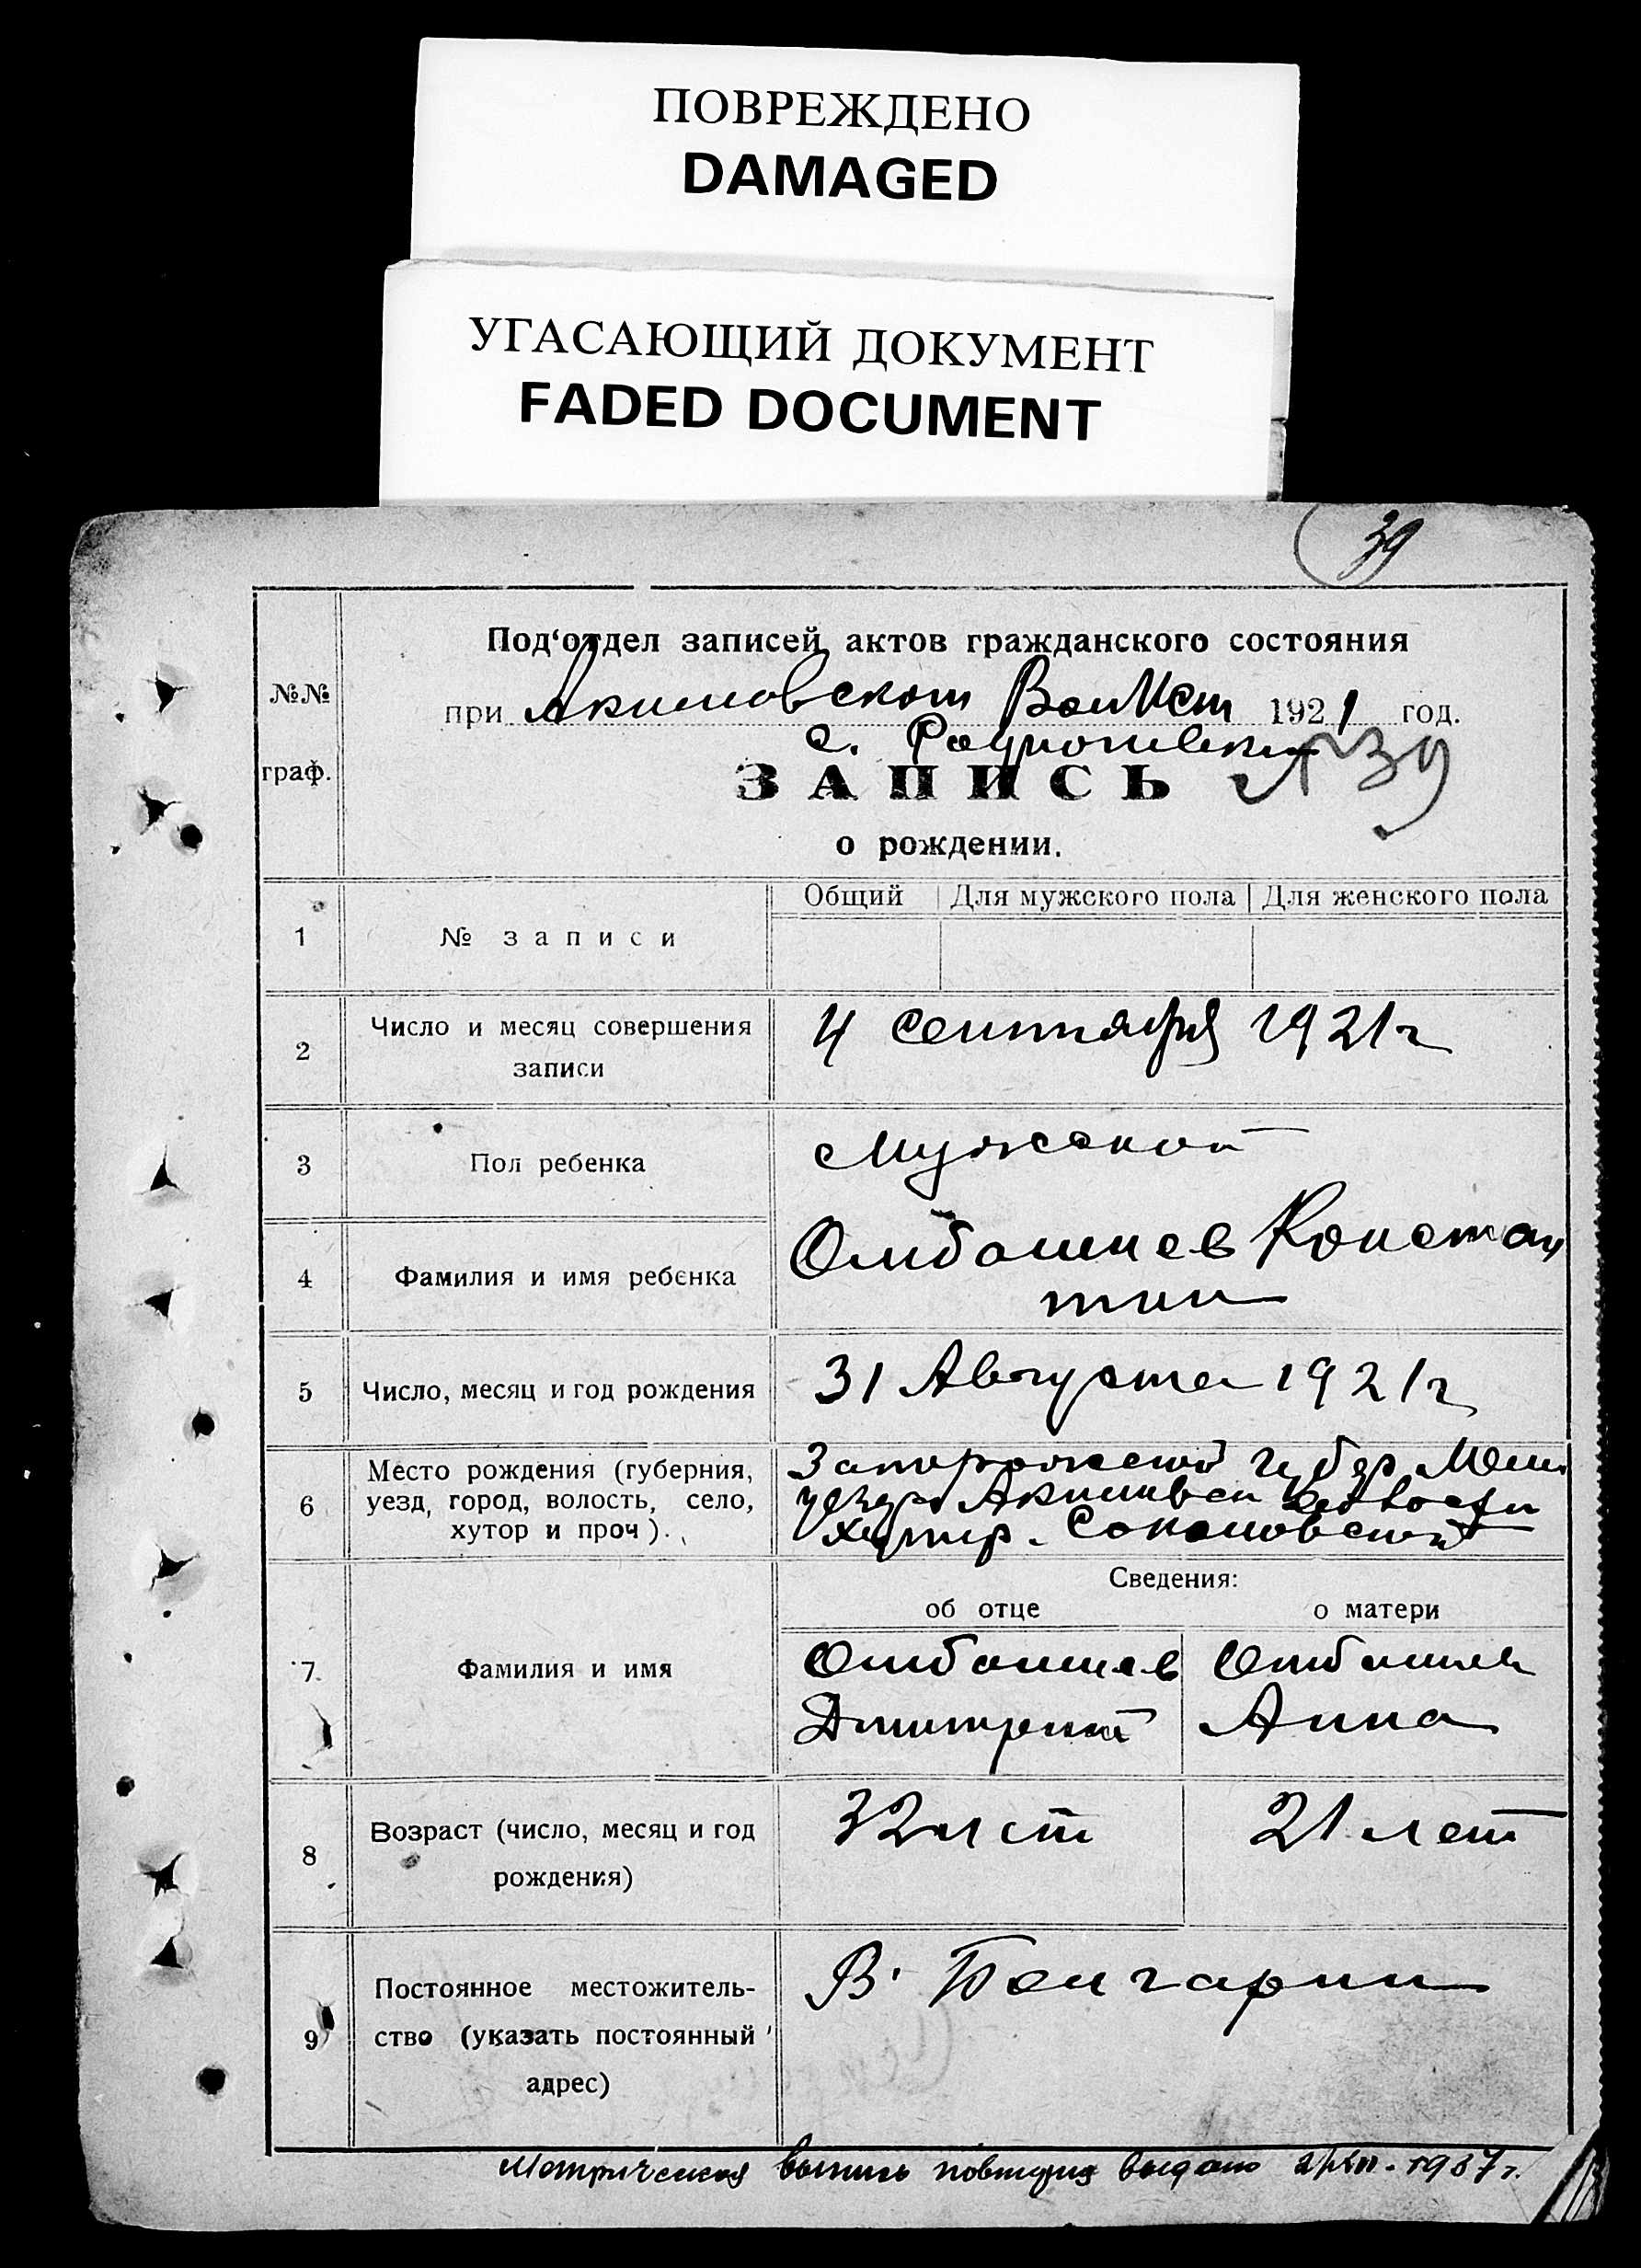 ПОВРЕЖДЕНО
DAMAGED
УГАСАЮЩИЙ ДОКУМЕНТ
FADED DOCUMENT
39
Под‘отдел записей актов гражданского состояния
№№
граф.
при Акимовском 1921 год.
с. Родионовки
ЗАПИСЬ №39
о рождении.
Общий Для мужского пола Для женского пола
1 № записи
2 Число и месяц совершения
записи
4 Сентября 1921 г
3 Пол ребенка
Мужской
4 Фамилия и имя ребенка
Констан
тин
5 Число, месяц и год рождения
31 Августа 1921 г
6 Место рождения (губерния,
уезд, город, волость, село,
хутор и проч).
Запорожской губер Мели
уезда Акимовской волости
хутор.
Сведения:
об отце о матери
7 Фамилия и имя
Дмитрий Анна
8 Возраст (число, месяц и год
рождения)
32 лет 21 лет
9 Постоянное местожитель-
ство (указать постоянный
адрес)
В. Болгарии
Метрическая выпись повторно выдана 1937 г.